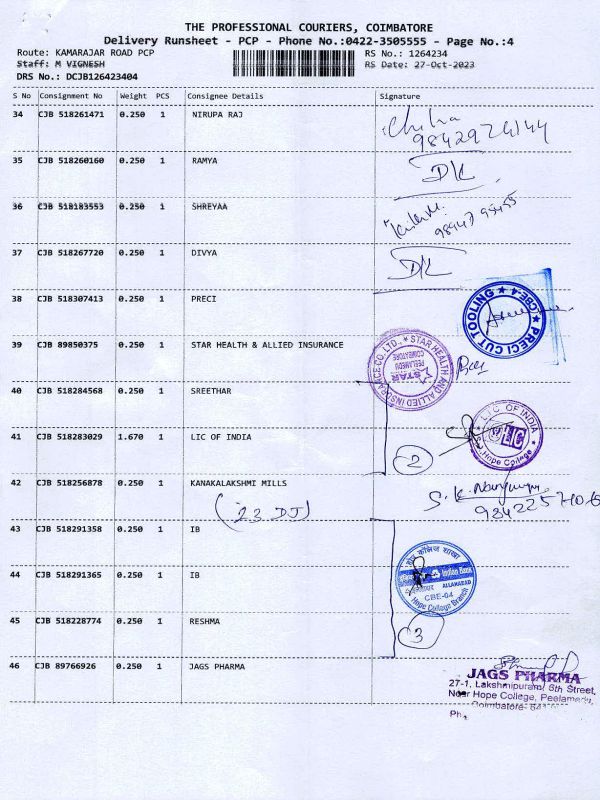 THE PROFESSIONAL COURIERS, COIMBATORE
Delivery Runsheet - PCP - Phone No.:0422-3505555 - Page No.:4
Route: KAMARAJAR ROAD PCP RS No.: 1264234
Staff: M VIGNESH RS Date: 27-Oct-2023
DRS No.: DCJB126423404
S No Consignment No Weight PCS Consignee Details Signature
34 CJB 518261471 0.250 1 NIRUPA RAJ
35 CJB 518260160 0.250 1 RAMYA
36 CJB 518183553 0.250 1 SHREYAA
37 CJB 518267720 0.250 1 DIVYA
38 CJB 518307413 0.250 1 PRECI
PRECI CUT TOOLING ★ CBE-4 ★
39 CJB 89850375 0.250 1 STAR HEALTH & ALLIED INSURANCE
STAR HEALTH AND ALLIED INSURANCE CO. LTD. ★
STAR
PEELAMEDU
COIMBATORE
40 CJB 518284568 0.250 1 SREETHAR
41 CJB 518283029 1.670 1 LIC OF INDIA
LIC OF INDIA
LIC
Hope College
2
42 CJB 518256878 0.250 1 KANAKALAKSHMI MILLS
(23 DJ)
43 CJB 518291358 0.250 1 IB
44 CJB 518291365 0.250 1 IB
Indian Bank
ALLAHABAD
CBE-04
Hope College Branch
45 CJB 518228774 0.250 1 RESHMA
3
46 CJB 89766926 0.250 1 JAGS PHARMA
JAGS PHARMA
27-1, Lakshmipuram, 6th Street,
Near Hope College, Peelamedu,
Coimbatore-
Ph.